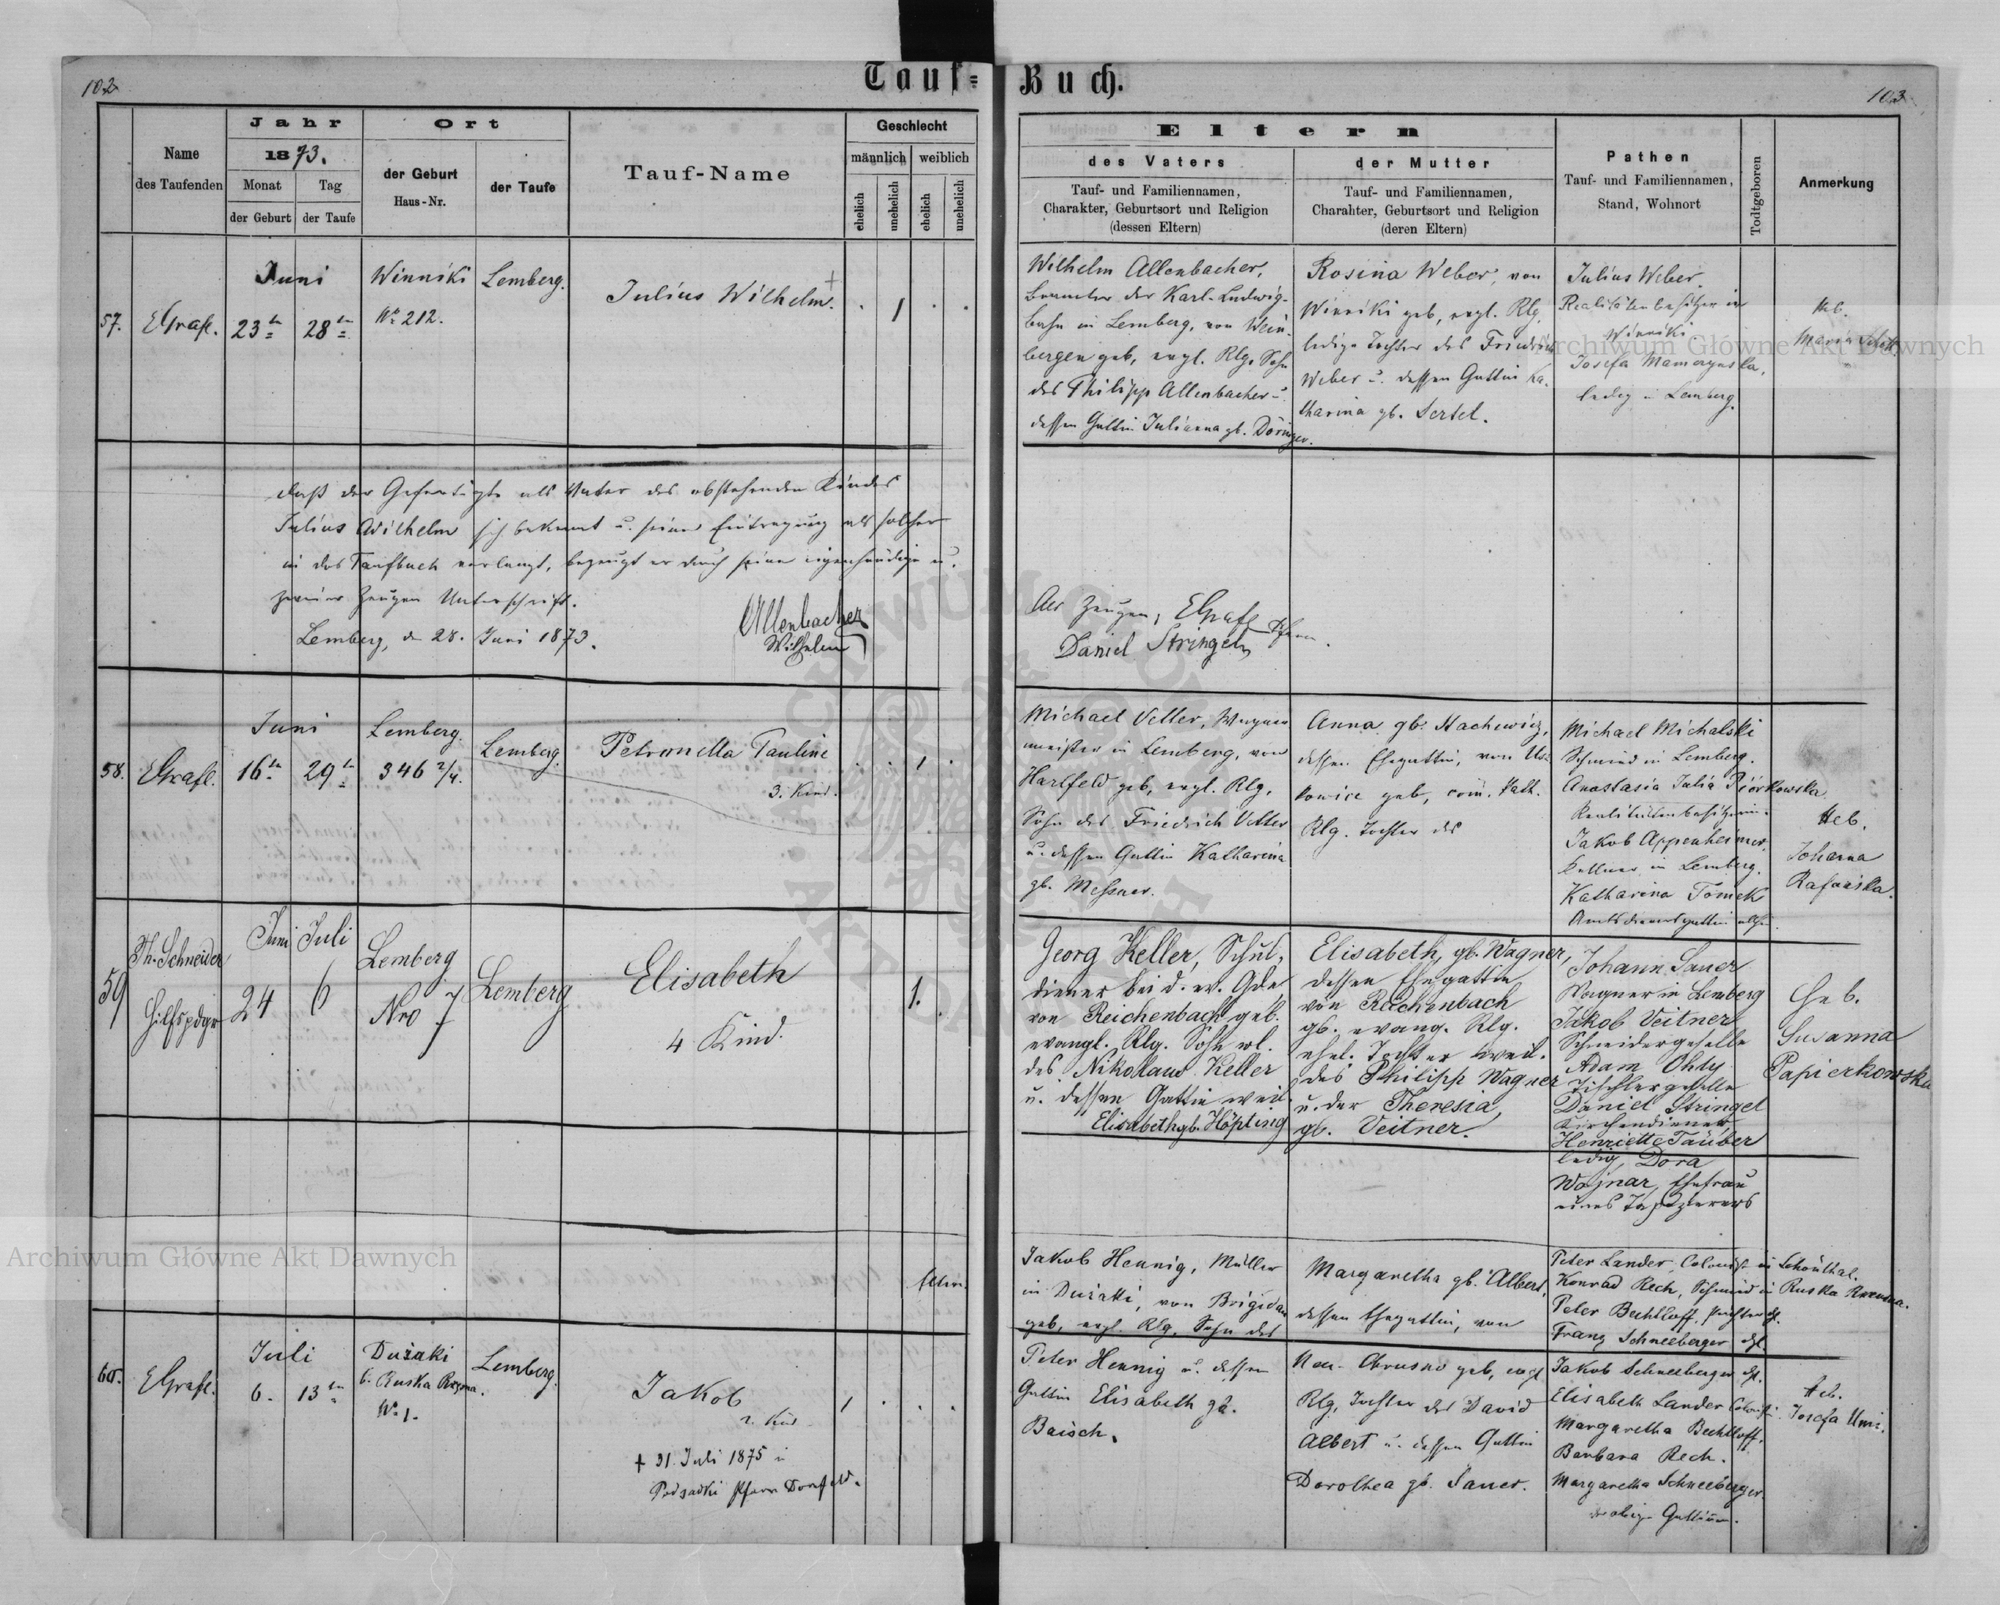 102
103
Tauf-Buch.
Name
des Taufenden
Jahr
1873.
Monat
Tag
der Geburt
der Taufe
Ort
der Geburt
Haus-Nr.
der Taufe
Tauf-Name
Geschlecht
männlich
weiblich
ehelich
unehelich
ehelich
unehelich
Eltern
des Vaters
Tauf- und Familiennamen,
Charakter, Geburtsort und Religion
(dessen Eltern)
der Mutter
Tauf- und Familiennamen,
Charahter, Geburtsort und Religion
(deren Eltern)
Pathen
Tauf- und Familiennamen,
Stand, Wohnort
Todtgeboren
Anmerkung
57.
EGrafl.
Juni
23tn
28tn
Winniki
No 212.
Lemberg.
Julius Wilhelm.
1
Wilhelm Allenbacher,
Beamter der Karl-Ludwig-
bahn in Lemberg, von Wein-
bergen geb, evgl. Rlg, Sohn
des Philipp Allenbacher u.
dessen Gattin Julianna gb. Döringer.
Rosina Weber, von
Winniki geb, evgl. Rlg,
ledige Tochter des Friedrich
Weber u. dessen Gattin Ka-
tharina gb. Sertel.
Julius Weber.
Realitätenbesitzer in
Winniki
Josefa
ledig in Lemberg.
Heb.
Maria
daß der Gefertigte als Vater des obstehenden Kindes
Julius Wilhelm sich bekennt u. seine Eintragung als solcher
in das Taufbuch verlangt, bezeugt er durch seine eigenhändige u.
zweier Zeugen Unterschrift.
Lemberg, den 28. Juni 1873.
Allenbacher
Wilhelm
Als Zeugen; EGrafl Pfarr.
Daniel Stringel
58.
EGrafl.
Juni
16tn
29tn
Lemberg.
346 2/4.
Lemberg.
Petronella Pauline
3. Kind.
1
Michael Vetter, Wagner
meister in Lemberg, von
Hartfeld geb, evgl. Rlg,
Sohn des Friedrich Vetter
u. dessen Gattin Katharina
gb. Messner.
Anna gb. Stachewicz,
dessen Ehegattin, von Us-
kowice geb, röm. kath.
Rlg. Tochter des
Michael Michalski
Schmied in Lemberg.
Anastasia Julia Piórkowska
Realitätenbesitzerin.
Jakob Appenheimer,
Kellner in Lemberg.
Katharina Tomek
Amtsdienersgattin
Heb.
Johanna
59
Th. Schneider
Hilfspdgr
Juni
Juli
24
6
Lemberg
Nro 7
Lemberg
Elisabeth
4 Kind.
1.
Georg Keller, Schul-
diener bei d. ev. Gde
von Reichenbach geb.
evangl. Rlg. Sohn wl.
des Nikolaus Keller
u. dessen Gattin weil.
Elisabeth gb. Höpting
Elisabeth, gb. Wagner,
dessen Ehegattin
von Reichenbach
gb. evang. Rlg.
ehel. Tochter weil.
des Philipp Wagner
u. der Theresia,
gb. Veitner.
Johann Sauer
Wagner in Lemberg
Jakob Veitner
Schneidergeselle
Adam Ohly
Tischlergeselle
Daniel Stringel
Kirchendiener
Henriette Täuber
ledig, Dora
Wojnar, Ehefrau
eines Tapezierers
Geb.
Susanna
Papierkowska
60.
EGrafl.
Juli
6.
13tn
Dusaki
b. Ruska
No 1.
Lemberg.
Jakob
2. Kind.
† 31. Juli 1875 in
Podsadki Pfarre Dornfeld.
1
Jakob Hennig, Müller
in Dusaki, von Brigidau
geb, evgl. Rlg, Sohn des
Peter Hennig u. dessen
Gattin Elisabeth gb.
Baisch.
Margaretha gb. Albert,
dessen Ehegattin, von
Neu-Chrusno geb, evgl
Rlg, Tochter des David
Albert u. dessen Gattin
Dorothea gb. Sauer.
Peter Lander, Colonist in Schönthal.
Konrad Rech, Schmied in Ruska
Peter Bechtloff, Pächter dt.
Franz Schneeberger dt.
Jakob Schneeberger dt.
Elisabeth Lander Colonistin
Margaretha Bechtloff.
Barbara Rech.
Margaretha Schneeberger.
Heb.
Josefa
Archiwum Główne Akt Dawnych
Archiwum Główne Akt Dawnych